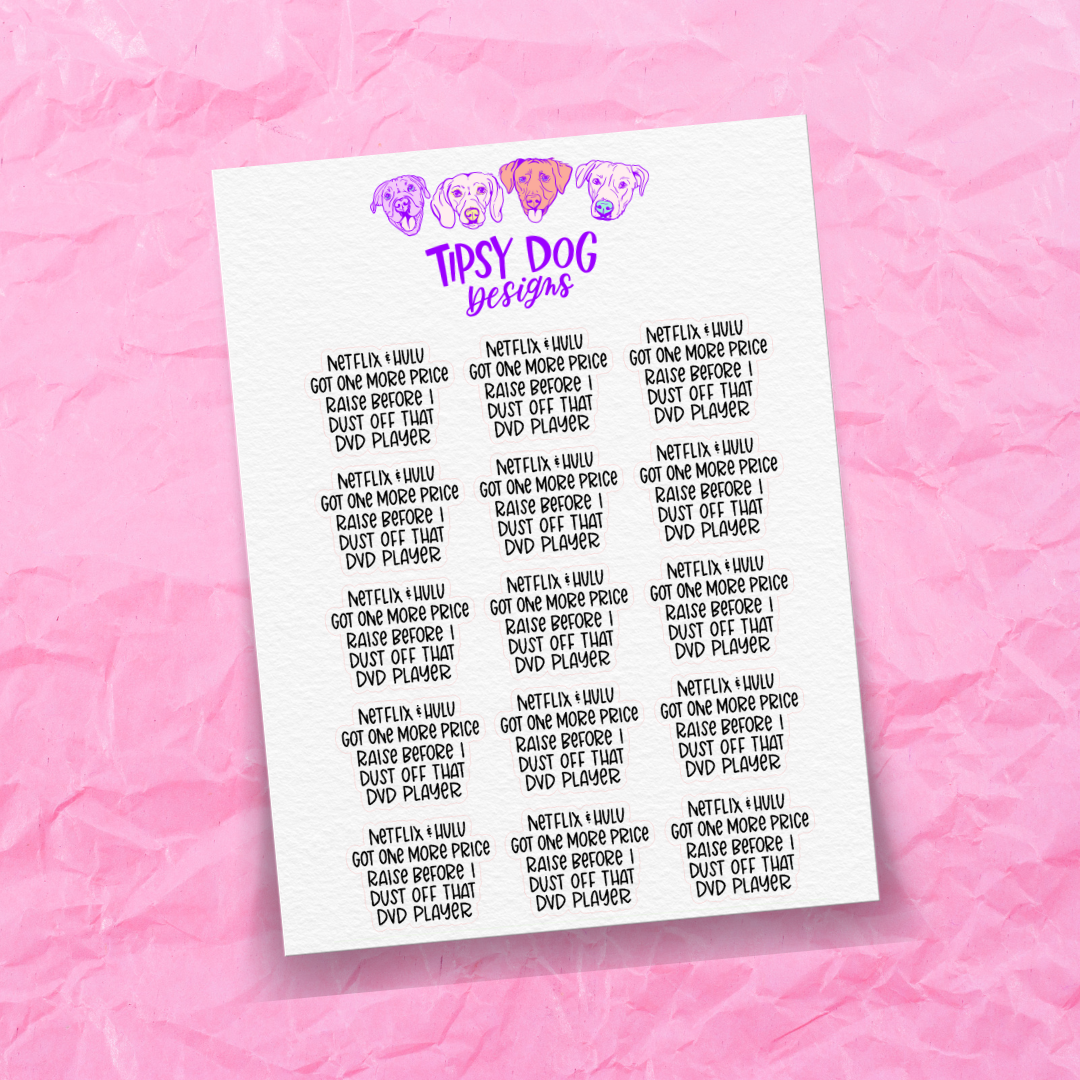 TIPSY DOG
Designs
NETFLIX & HULU
GOT ONE MORE PRICE
RAISE BEFORE I
DUST OFF THAT
DVD PLAYER
NETFLIX & HULU
GOT ONE MORE PRICE
RAISE BEFORE I
DUST OFF THAT
DVD PLAYER
NETFLIX & HULU
GOT ONE MORE PRICE
RAISE BEFORE I
DUST OFF THAT
DVD PLAYER
NETFLIX & HULU
GOT ONE MORE PRICE
RAISE BEFORE I
DUST OFF THAT
DVD PLAYER
NETFLIX & HULU
GOT ONE MORE PRICE
RAISE BEFORE I
DUST OFF THAT
DVD PLAYER
NETFLIX & HULU
GOT ONE MORE PRICE
RAISE BEFORE I
DUST OFF THAT
DVD PLAYER
NETFLIX & HULU
GOT ONE MORE PRICE
RAISE BEFORE I
DUST OFF THAT
DVD PLAYER
NETFLIX & HULU
GOT ONE MORE PRICE
RAISE BEFORE I
DUST OFF THAT
DVD PLAYER
NETFLIX & HULU
GOT ONE MORE PRICE
RAISE BEFORE I
DUST OFF THAT
DVD PLAYER
NETFLIX & HULU
GOT ONE MORE PRICE
RAISE BEFORE I
DUST OFF THAT
DVD PLAYER
NETFLIX & HULU
GOT ONE MORE PRICE
RAISE BEFORE I
DUST OFF THAT
DVD PLAYER
NETFLIX & HULU
GOT ONE MORE PRICE
RAISE BEFORE I
DUST OFF THAT
DVD PLAYER
NETFLIX & HULU
GOT ONE MORE PRICE
RAISE BEFORE I
DUST OFF THAT
DVD PLAYER
NETFLIX & HULU
GOT ONE MORE PRICE
RAISE BEFORE I
DUST OFF THAT
DVD PLAYER
NETFLIX & HULU
GOT ONE MORE PRICE
RAISE BEFORE I
DUST OFF THAT
DVD PLAYER